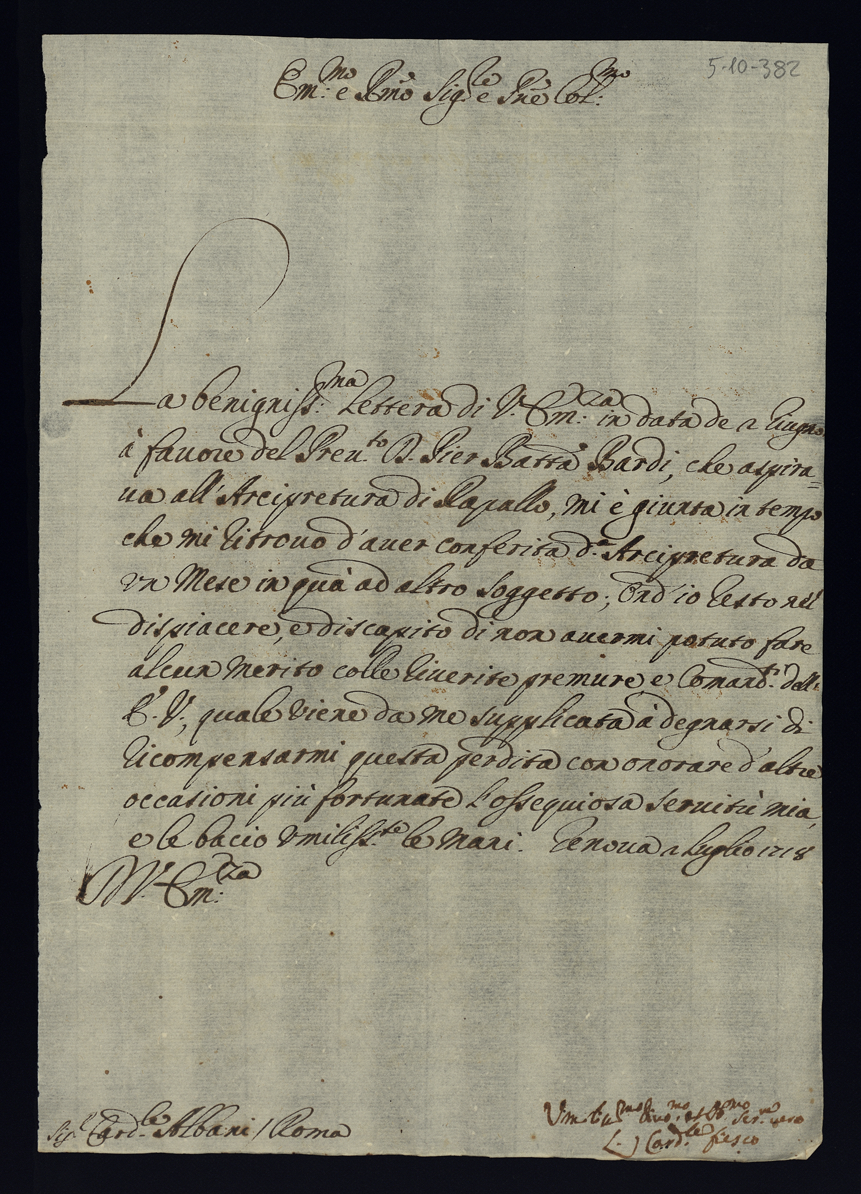 5-10-382
Em:mo e Rmo Sig.re e Prne Col:mo
La benigniss:ma Lettera di V. Em:za in data de 2 Giugno
à fauore del Preu.to D. Pier Batta Bardi, che aspira=
ua all'Arcipretura di Rapallo, mi è giunta in tempo
che mi ritrouo d'auer conferita d.a Arcipretura da
vn Mese in quà ad altro Soggetto; Ond'io resto nel
dispiacere, e discapito di non auermi potuto fare
alcun merito colle riuerite premure, e Comand.ti dell'
E. V., quale viene da me supplicata à degnarsi di
ricompensarmi questa perdita con onorare d'altre
occasioni più fortunate l'ossequiosa seruitù mia,
e le bacio vmiliss.te le Mani. Genoua 2 Luglio 1718
D V. Em:za
Sig.r Card.le Albani / Roma
Vmil:mo Diuo.mo et Ob.mo Ser.re uero
L. Card.le fiesco